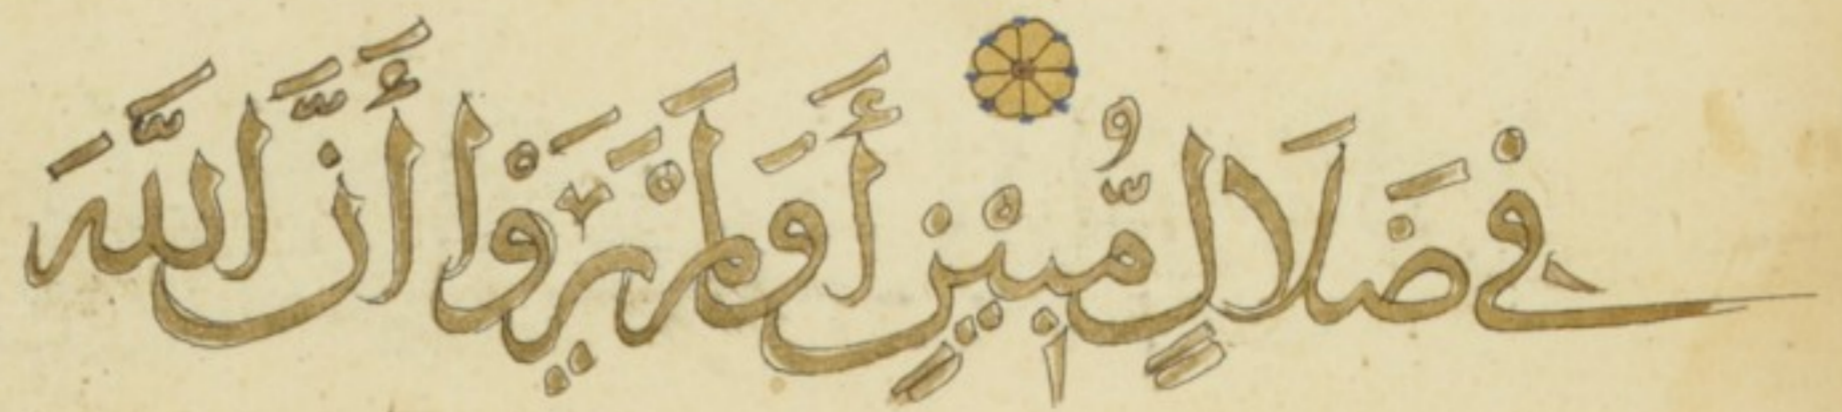 فِي ضَلَالٍ مُّبِيْنٍ أَوَلَمْ يَرَوْا أَنَّ اللَّهَ